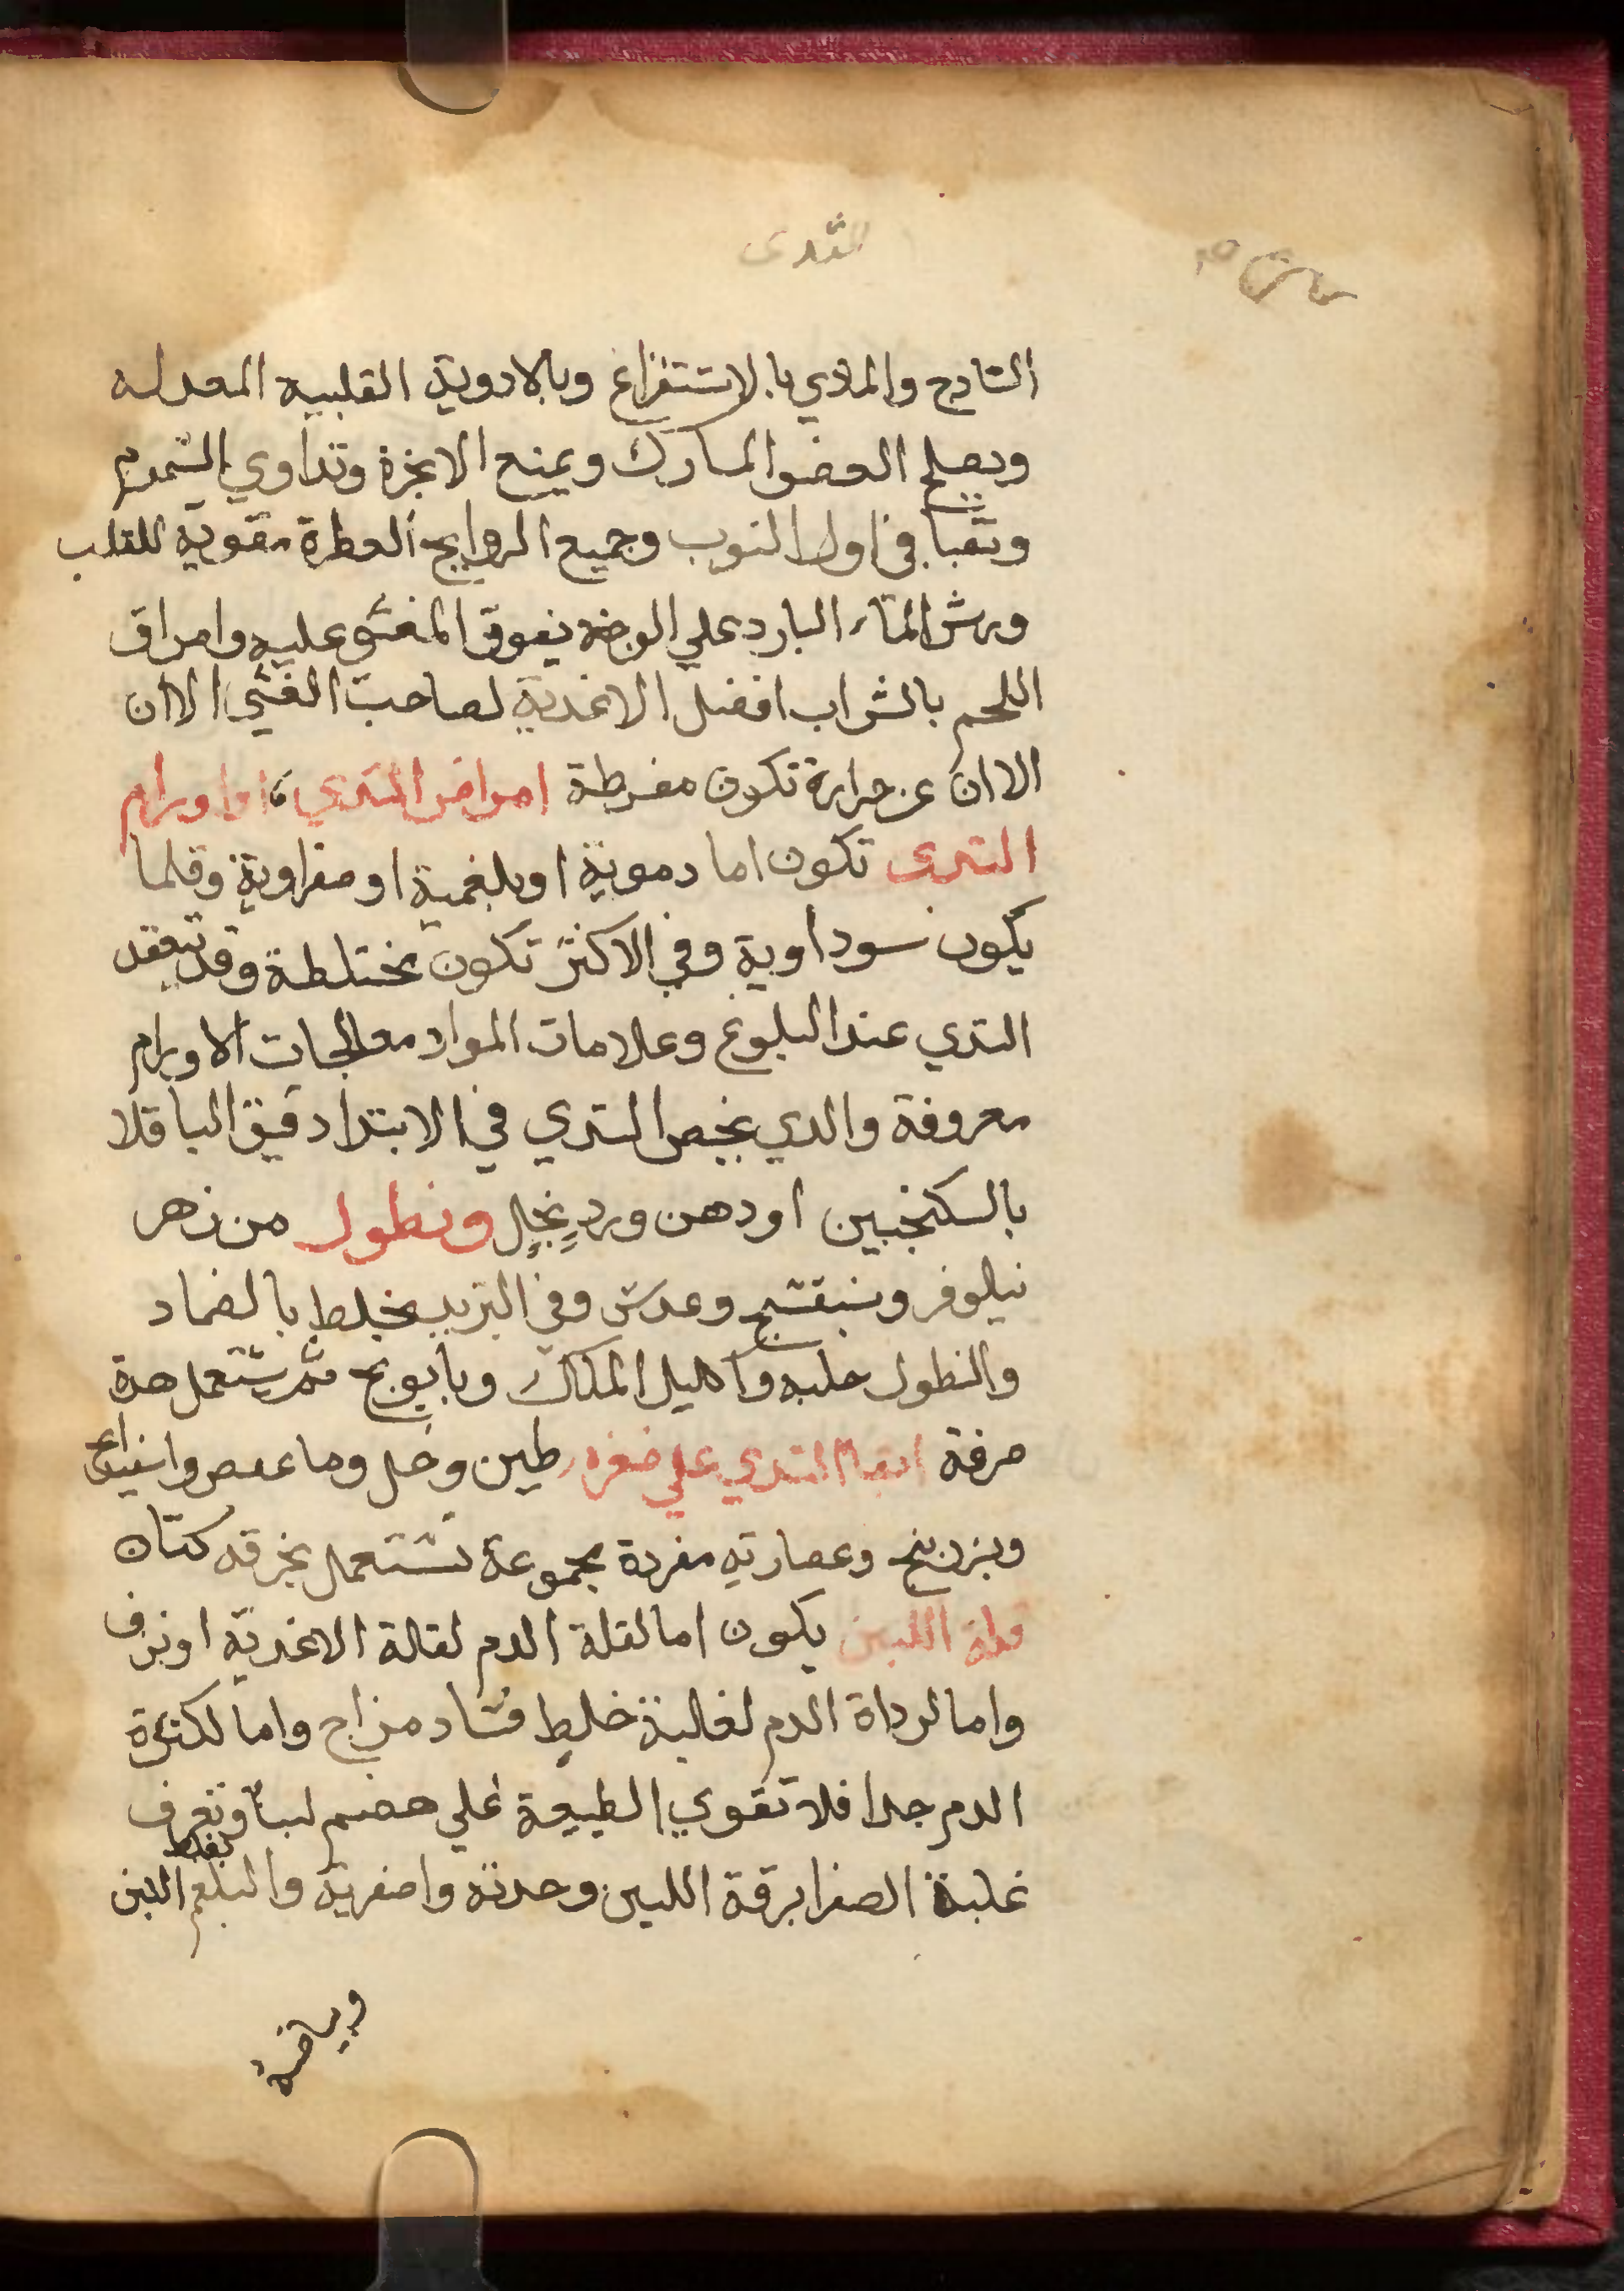 الثدى
الساذج والمادي بالاستفراغ وبالادوية القلبيه المعدله
ويصلح العضو المشارك ويمنع الابخرة وتداوي السموم
وتقيا في اول النوب وجميع الروايح العطرة مقوية للقلب
ورش الماء البارد علي الوجه يفوق المغشي عليه وامراق
اللحم بالشراب افضل الاغدية لصاحب الغشي الا ان
الا ان عن حرارة تكون مفرطة امراض التدي اما اورام
التدى تكون اما دموية او بلغمية او صفراوية وقلما
يكون سوداوية وفي الاكثر تكون مختلطة وقد تنعقد
التدي عند البلوغ وعلامات المواد معالجات الاورام
معروفة والدي يخص التدي في الابتدا دقيق الباقلا
بالسكنجبين او دهن ورد بخل ونطول من زهر
نيلوفر وبنفسج وعدس وفي التزيد يخلط بالضماد
والنطول حلبه واكليل الملك وبابونج ثم يستعمل هدة
صرفة ابقا التدي علي صغره طين وخل وما عفص واسفيداج
وبزر بنج وعصارته مفردة مجموعة تستعمل بخرقه كتان
قلة اللبن يكون اما لقلة الدم لقلة الاغدية او نزف
واما لرداة الدم لغلبة خلط فساد مزاج واما لكثرة
الدم جدا فلا تقوي الطبيعة علي هضم لبنا وتعرف
غلبة الصفرا برقة اللبن وحدته واصفريه والبلغم بغلظ اللبن
وبياضه